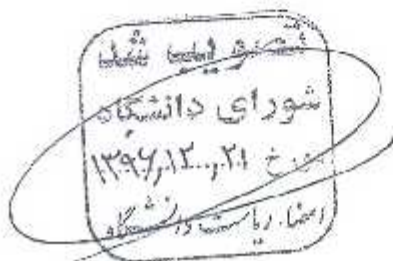 تصویب شد
شورای دانشگاه
مورخ ۱۳۹۶,۱۲,۲۱
امضا. ریاست دانشگاه